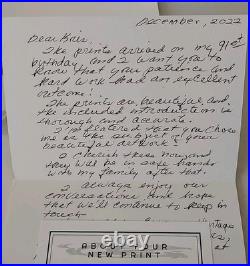 December, 2022
Dear Brie,
The prints arrived on my 91st
birthday, and I want you to
know that your patience and
hard work had an excellent
outcome!
The prints are beautiful and
the included introduction is
thorough and accurate.
I'm flattered that you chose
me as the subject of your
beautiful artwork!
I cherish these now and
they will be in safe hands
with my family after that.
I always enjoy our
conversations and hope
that we'll continue to keep in
touch
ABOUT YOUR
NEW PRINT